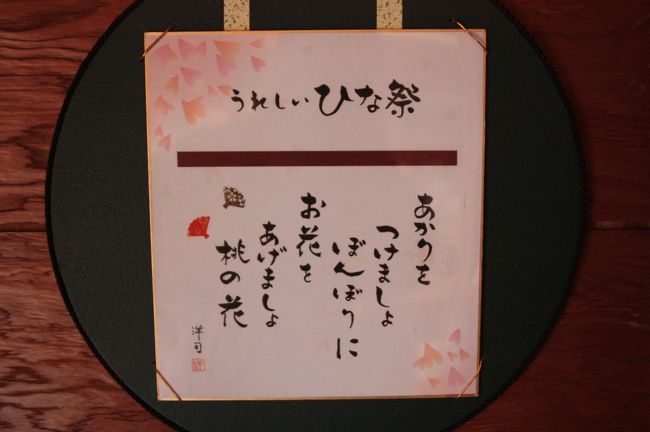 うれしいひな祭
あかりを
つけましょ
ぼんぼりに
お花を
あげましょ
桃の花
洋司